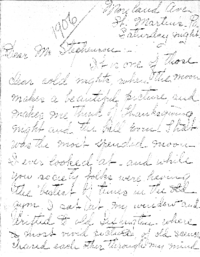 1906
Moreland Ave
St. Martins, Pa
Saturday night
Dear Mr Steehurson -
It is one of those
clear cold nights when the moon
makes a beautiful picture and
makes me think of Thanksgiving
night and the Yale That
was the most splendid moon
I ever looked at - and while
you society folks were having
the best of times in the old
gym I sat at the window and
old where
most vivid pictures of old scenes
each other through my mind